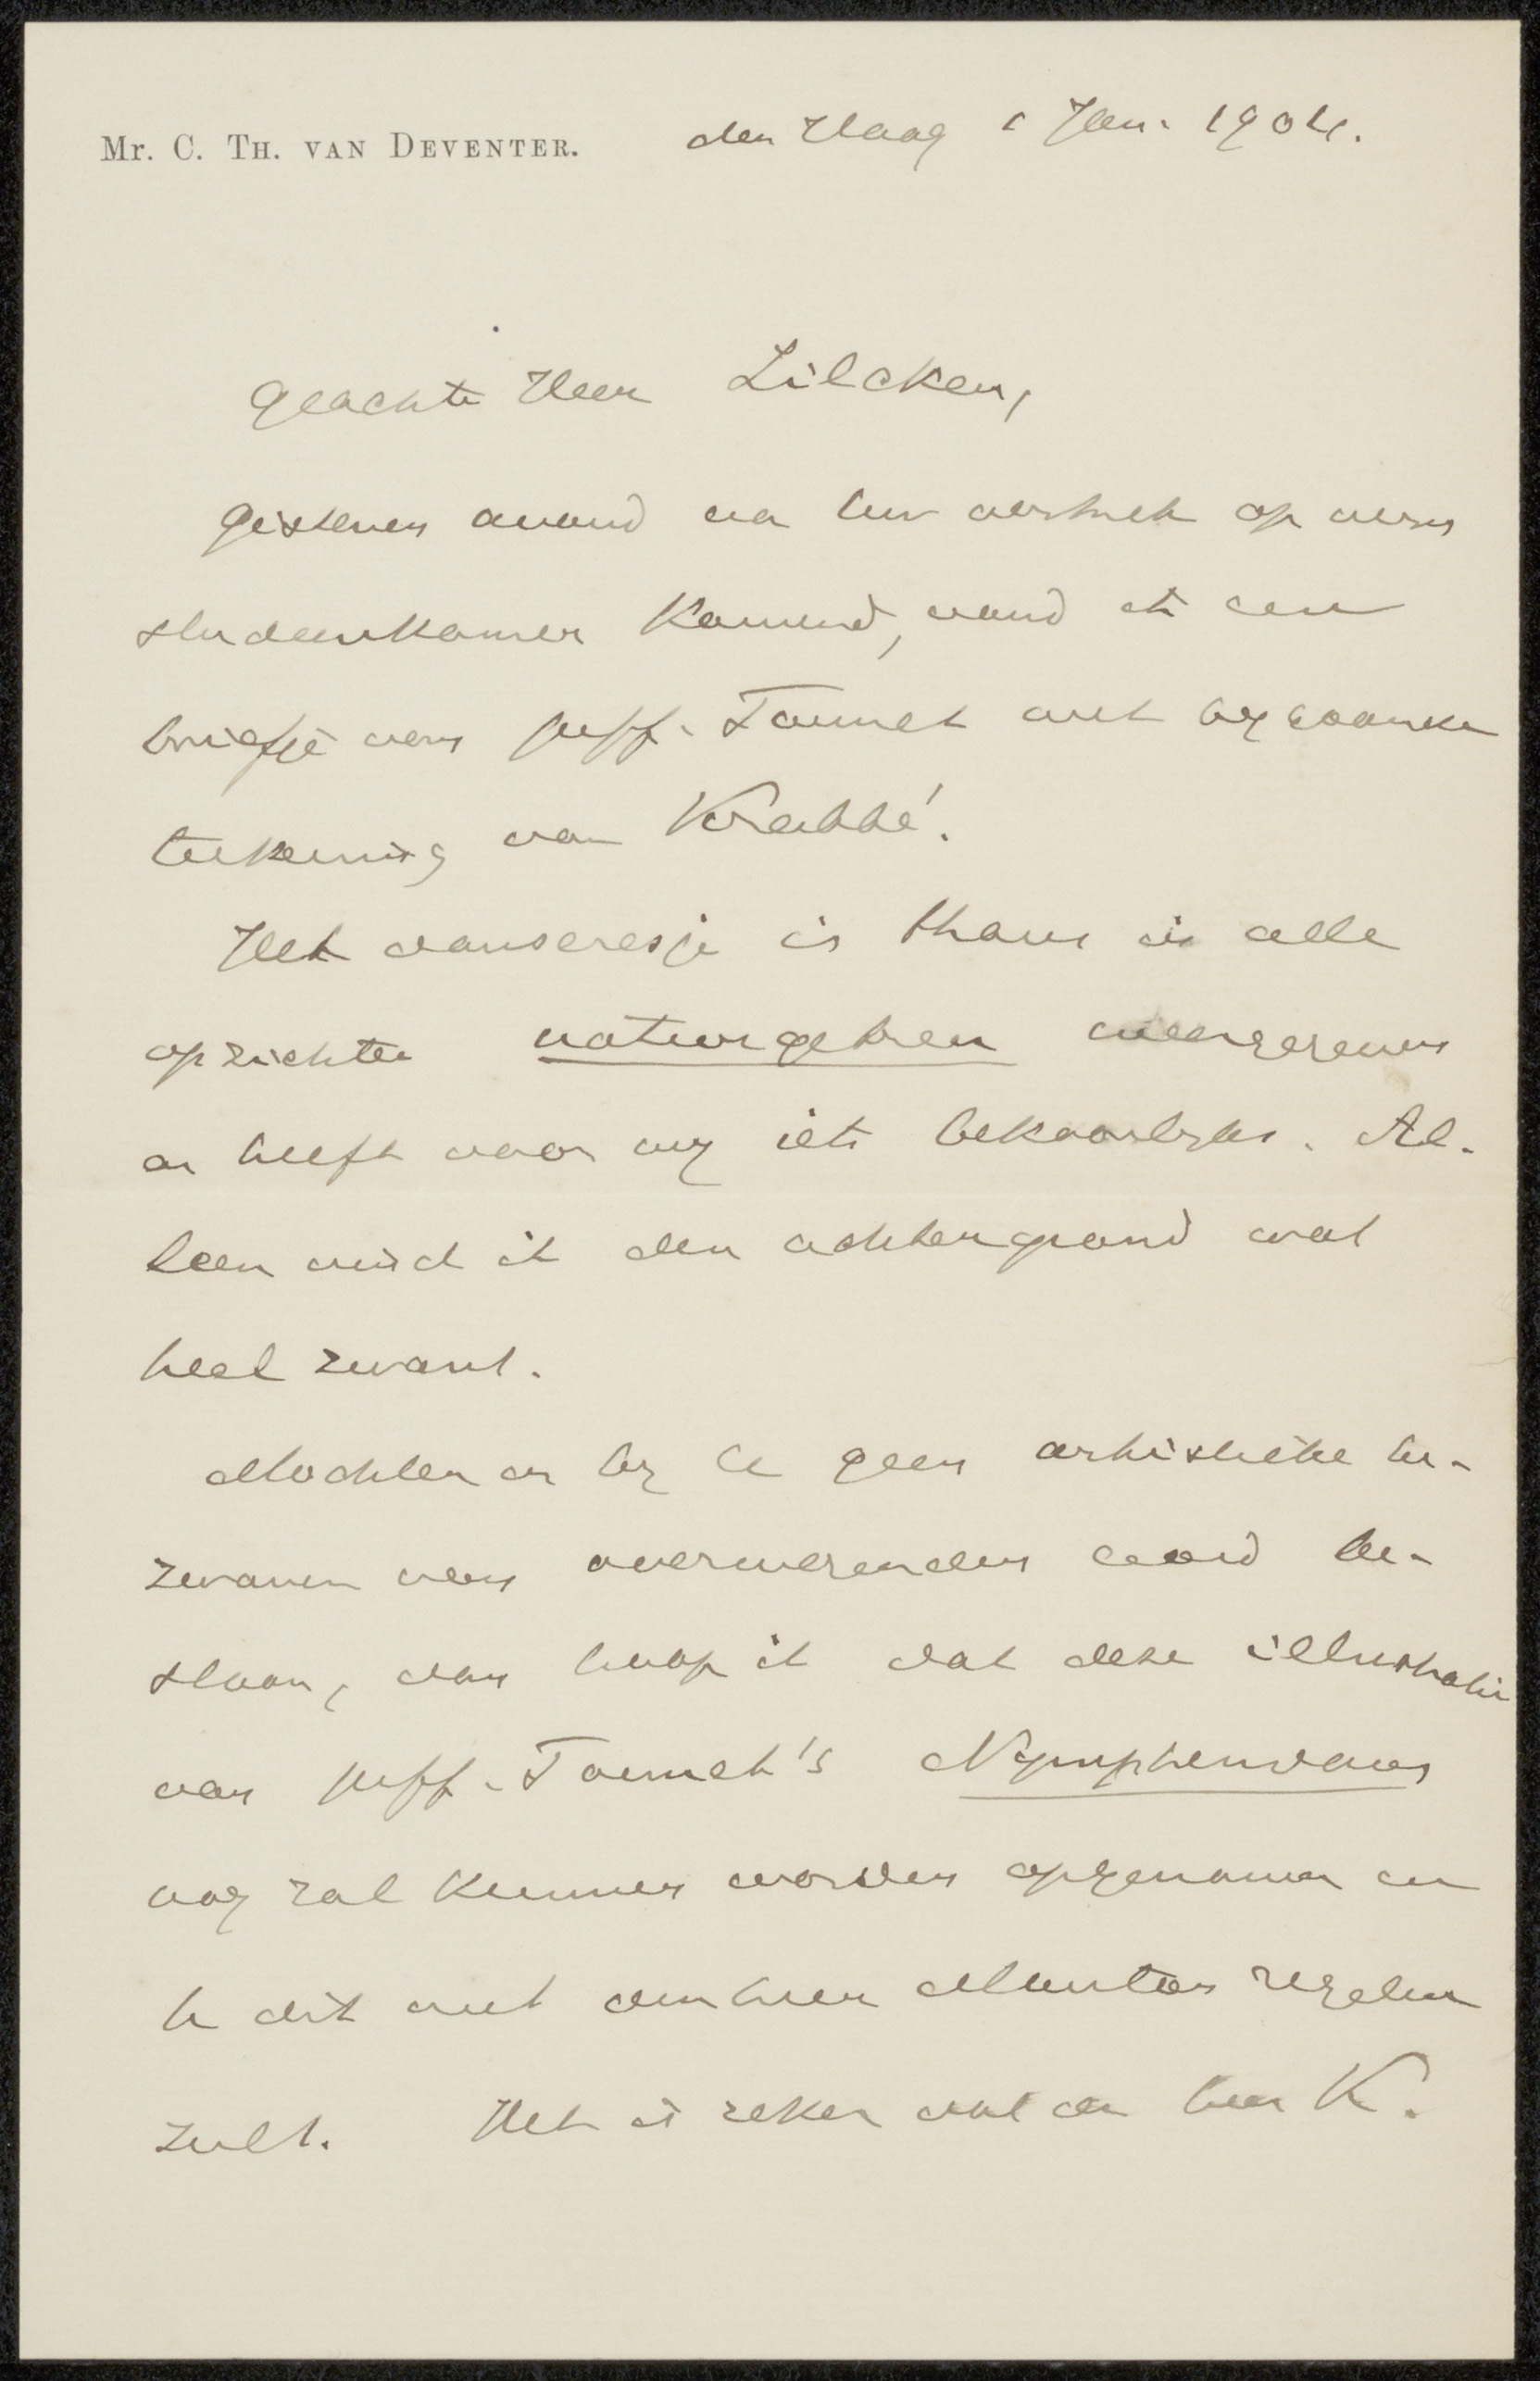 Mr. C. Th. van Deventer.
den Haag 1 Jan. 1904.
Geachte Heer Zilcken,
Gisteren avond na Uw vertrek op mijn
studeerkamer komend, vond ik een
briefje van Juff. Tonnet met bijgaande
teekening van Krabbé.
Het danseresje is thans in alle
opzichten natuurgetrouw weergegeven
en heeft voor mij iets bekoorlijks. Al-
leen vind ik den achtergrond wat
heel zwart.
Mochten er bij U geen artistieke be-
zwaren van overwegenden aard be-
staan, dan hoop ik dat deze illustratie
van Juff. Tonnet's Nymphendans
nog zal kunnen worden opgenomen en
U dit met den heer regelen
zult. Het is zeker dat de heer K.